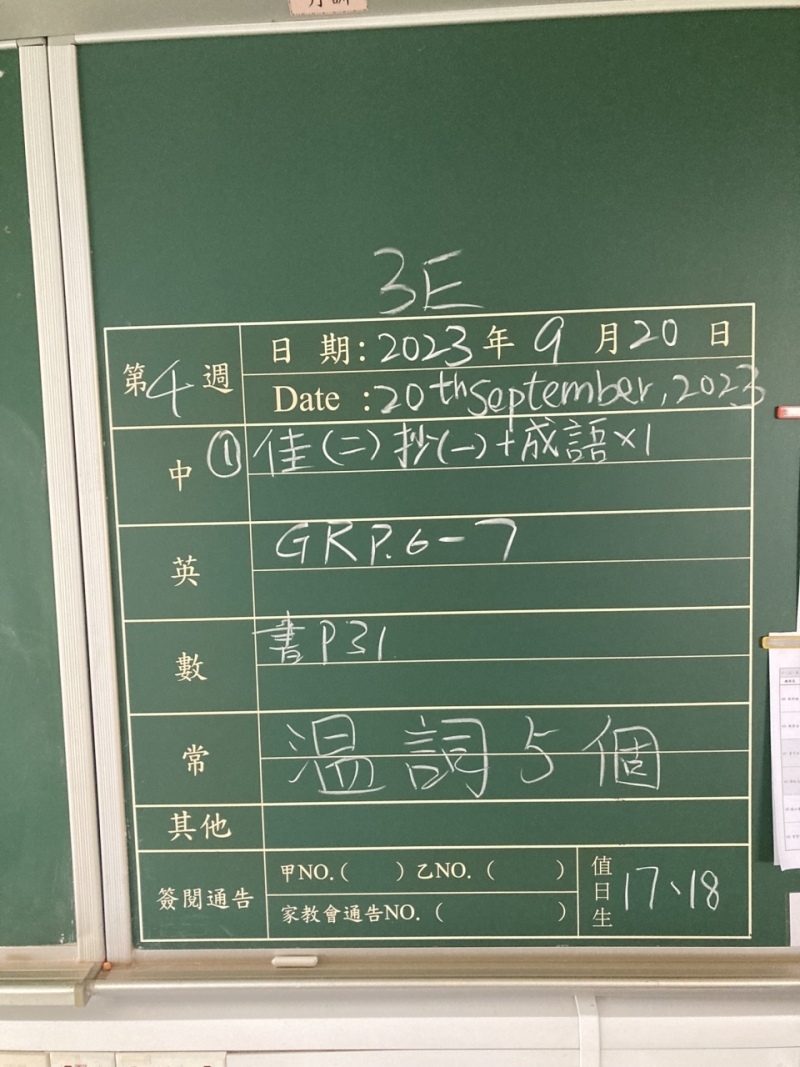 3E
第4週
日 期：2023年9月20日
Date ：20th September, 2023
中 ①佳(二)抄(一)+成語×1
英 GRP.6-7
數 書P31
常 温詞5個
其他
簽閱通告
甲NO.(    )乙NO.(    )
家教會通告NO.(    )
值日生 17、18